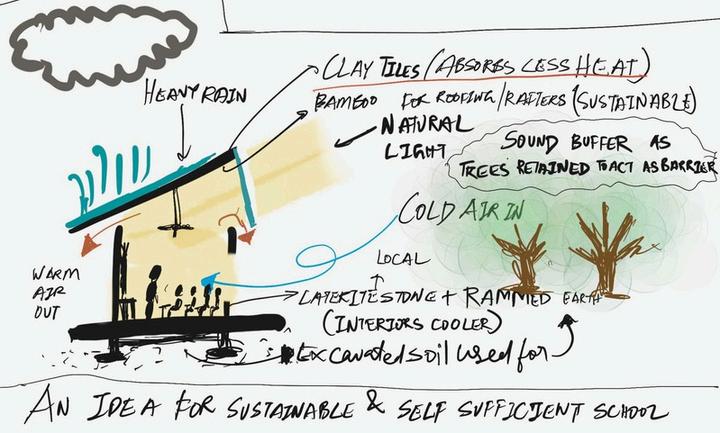 CLAY TILES (ABSORBS LESS HEAT)
HEAVY RAIN
BAMBOO FOR ROOFING/RAFTERS (SUSTAINABLE)
NATURAL
LIGHT
SOUND BUFFER AS
TREES RETAINED TO ACT AS BARRIER
COLD AIR IN
WARM
AIR
OUT
LOCAL
LATERITE STONE + RAMMED EARTH
(INTERIORS COOLER)
Excavated soil used for
AN IDEA FOR SUSTAINABLE & SELF SUFFICIENT SCHOOL